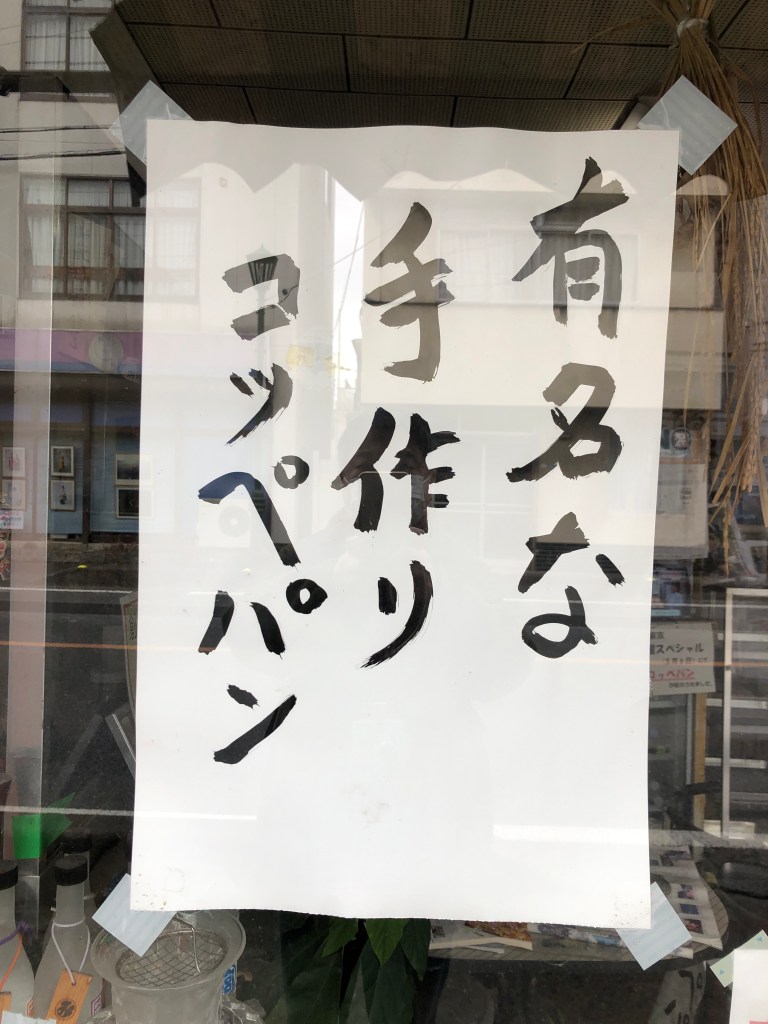 有名な
手作り
コッペパン
スペシャル
コッペパン